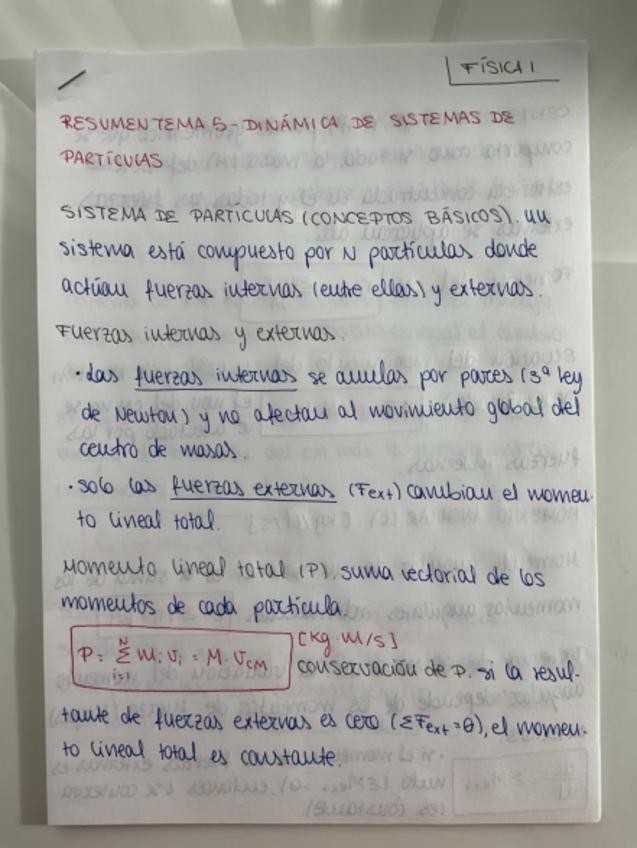 FÍSICA I
RESUMEN TEMA 5 - DINÁMICA DE SISTEMAS DE
PARTÍCULAS
SISTEMA DE PARTÍCULAS (CONCEPTOS BÁSICOS). un
sistema está compuesto por N partículas donde
actúan fuerzas internas (entre ellas) y externas.
Fuerzas internas y externas.
· Las fuerzas internas se anulas por pares (3ª ley
de Newton) y no afectan al movimiento global del
centro de masas.
· solo las fuerzas externas (Fext) cambian el momen-
to lineal total.
Momento lineal total (P). suma vectorial de los
momentos de cada partícula.
P = Σ_{i=1}^{N} mi vi = M · VCM [kg · m/s]
conservación de P. si la resul-
tante de fuerzas externas es cero (ΣFext = 0), el momen-
to lineal total es constante.